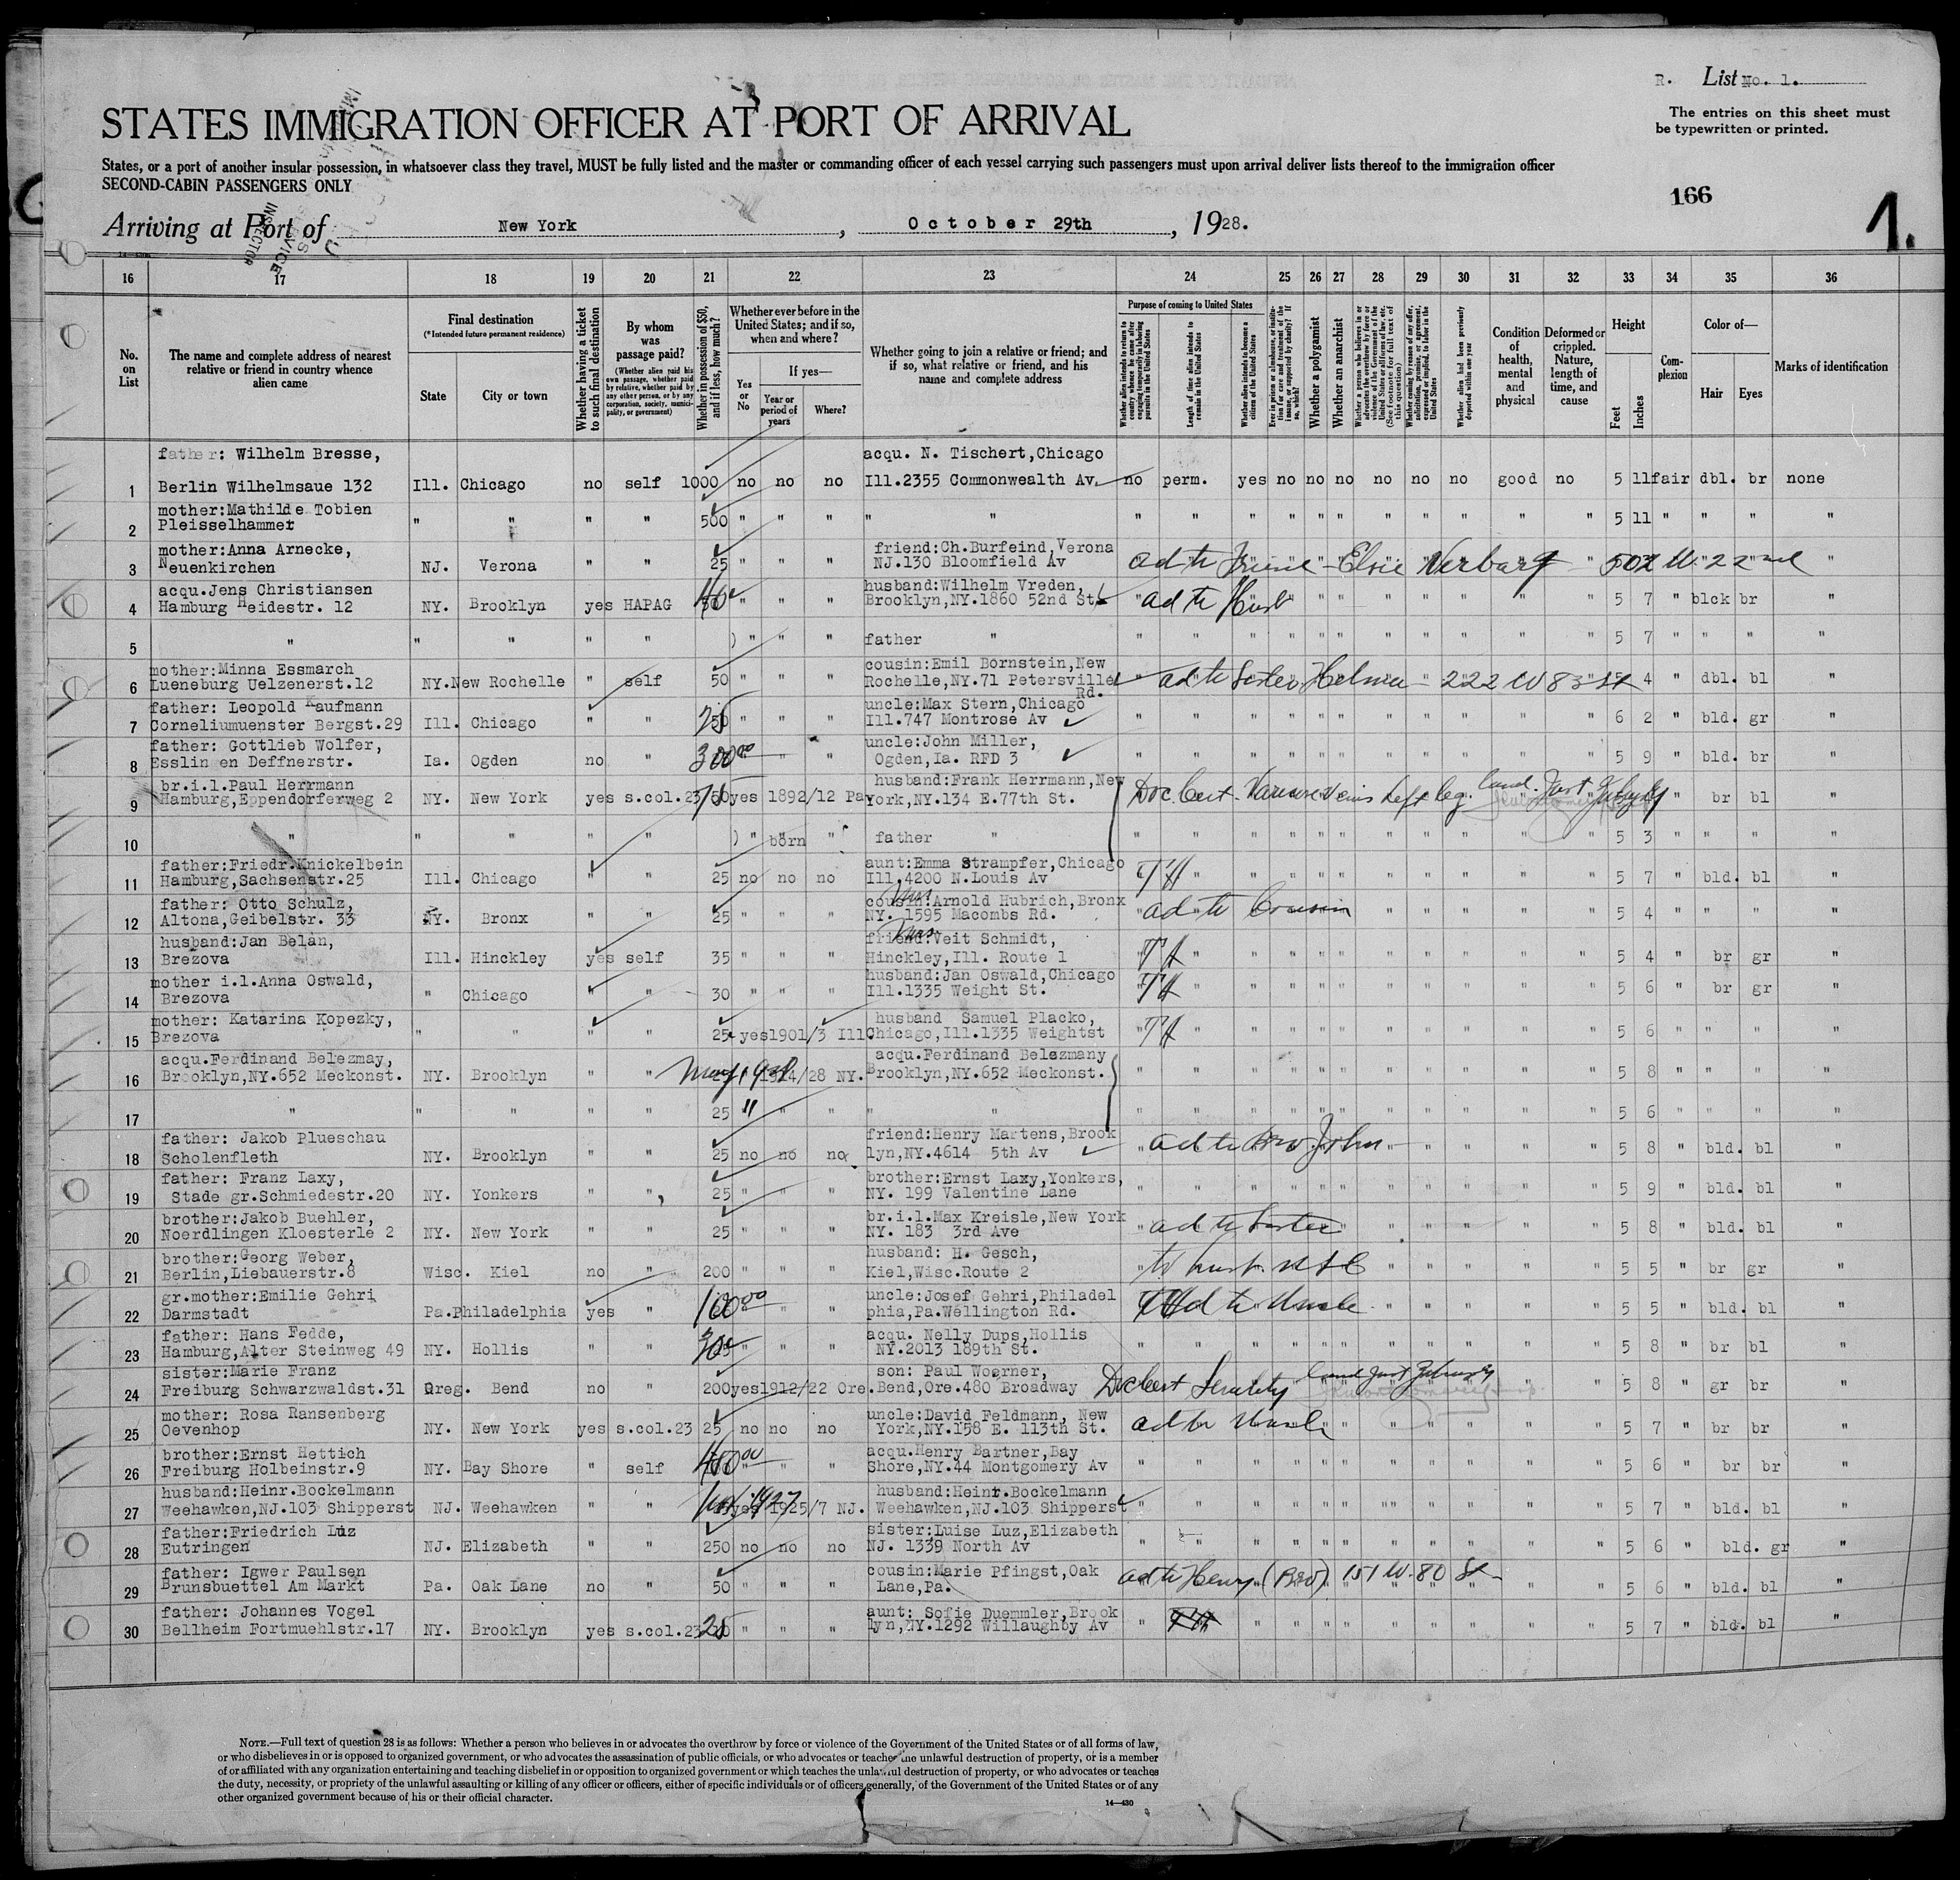 R. List No. 1.
The entries on this sheet must
be typewritten or printed.
STATES IMMIGRATION OFFICER AT PORT OF ARRIVAL
States, or a port of another insular possession, in whatsoever class they travel, MUST be fully listed and the master or commanding officer of each vessel carrying such passengers must upon arrival deliver lists thereof to the immigration officer
SECOND-CABIN PASSENGERS ONLY
166
1.
Arriving at Port of New York, October 29th, 1928.
INSPECTOR
16 17 18 19 20 21 22 23 24 25 26 27 28 29 30 31 32 33 34 35 36
No. on List
The name and complete address of nearest relative or friend in country whence alien came
Final destination
(*Intended future permanent residence)
State
City or town
Whether having a ticket to such final destination
By whom was passage paid?
(Whether alien paid his own passage, whether paid by relative, whether paid by any other person, or by any corporation, society, municipality, or government)
Whether in possession of $50, and if less, how much?
Whether ever before in the United States; and if so, when and where?
Yes or No
If yes—
Year or period of years
Where?
Whether going to join a relative or friend; and if so, what relative or friend, and his name and complete address
Purpose of coming to United States
Whether alien intends to return to country whence he came after engaging temporarily in laboring pursuits in the United States
Length of time alien intends to remain in the United States
Whether alien intends to become a citizen of the United States
Ever in prison or almshouse, or institution for care and treatment of the insane, or supported by charity? If so, which?
Whether a polygamist
Whether an anarchist
Whether a person who believes in or advocates the overthrow by force or violence of the Government of the United States or all forms of law, etc. (See footnote for full text of this question)
Whether coming by reason of any offer, solicitation, promise, or agreement, expressed or implied, to labor in the United States
Whether alien had been previously deported within one year
Condition of health, mental and physical
Deformed or crippled. Nature, length of time, and cause
Height
Feet
Inches
Complexion
Color of—
Hair
Eyes
Marks of identification
father: Wilhelm Bresse, acqu. N. Tischert,Chicago
1 Berlin Wilhelmsaue 132 Ill. Chicago no self 1000 no no no Ill.2355 Commonwealth Av. no perm. yes no no no no no no good no 5 11 fair dbl. br none
mother:Mathilde Tobien
2 Pleisselhammer " " " " 500 " " " " " " " " " " " " " " " " " 5 11 " " " "
mother:Anna Arnecke, friend:Ch.Burfeind,Verona
3 Neuenkirchen NJ. Verona " " 25 " " " NJ.130 Bloomfield Av ad to friend - Elsie Verburg - 502 W. 22nd "
acqu.Jens Christiansen husband:Wilhelm Vreden,
4 Hamburg Heidestr. 12 NY. Brooklyn yes HAPAG " " " Brooklyn,NY.1860 52nd St. " ad to Husb " " " " " " " " 5 7 " blck br "
5 " " " " " ) " " " father " " " " " " " " " " " " 5 7 " " " "
mother:Minna Essmarch cousin:Emil Bornstein,New
6 Lueneburg Uelzenerst.12 NY. New Rochelle " self 50 " " " Rochelle,NY.71 Petersville Rd. " ad to Sister Helma - 222 W 83 St 4 " dbl. bl "
father: Leopold Kaufmann uncle:Max Stern,Chicago
7 Corneliumuenster Bergst.29 Ill. Chicago " " " " " Ill.747 Montrose Av " " " " " " " " " " " 6 2 " bld. gr "
father: Gottlieb Wolfer, uncle:John Miller,
8 Esslin en Deffnerstr. Ia. Ogden no " 300 00 " " Ogden,Ia. RFD 3 " " " " " " " " " " " 5 9 " bld. br "
br.i.l.Paul Herrmann husband:Frank Herrmann,New
9 Hamburg,Eppendorferweg 2 NY. New York yes s.col.23 yes 1892/12 Pa York,NY.134 E.77th St. Doc. Cert. Varicose Veins Left leg. " br bl "
10 " " " " " ) " born " father " " " " " " " " " " " " 5 3 " " " "
father:Friedr.Knickelbein aunt:Emma Strampfer,Chicago
11 Hamburg,Sachsenstr.25 Ill. Chicago " " 25 no no no Ill,4200 N.Louis Av " " " " " " " " " " " 5 7 " bld. bl "
father: Otto Schulz, cousin:Arnold Hubrich,Bronx
12 Altona,Geibelstr. 33 NY. Bronx " " 25 " " " NY. 1595 Macombs Rd. " ad to Cousin " " " " " " " " 5 4 " " " "
husband:Jan Belan, friend:Veit Schmidt,
13 Brezova Ill. Hinckley yes self 35 " " " Hinckley,Ill. Route 1 " " " " " " " " " " " 5 4 " br gr "
mother i.l.Anna Oswald, husband:Jan Oswald,Chicago
14 Brezova " Chicago " " 30 " " " Ill.1335 Weight St. " " " " " " " " " " " 5 6 " br gr "
mother: Katarina Kopezky, husband Samuel Placko,
15 Brezova " " " " 25 yes 1901/3 Ill. Chicago,Ill.1335 Weightst " " " " " " " " " " " 5 6 " " " "
acqu.Ferdinand Belezmay, acqu.Ferdinand Belezmany
16 Brooklyn,NY.652 Meckonst. NY. Brooklyn " " /28 NY. Brooklyn,NY.652 Meckonst. " " " " " " " " " " " 5 8 " " " "
17 " " " " " 25 " " " " " " " " " " " " " " " " " 5 6 " " " "
father: Jakob Plueschau friend:Henry Martens,Brook
18 Scholenfleth NY. Brooklyn " " 25 no no no lyn,NY.4614 5th Av " ad to bro John " " " " " " " 5 8 " bld. bl "
father: Franz Laxy, brother:Ernst Laxy,Yonkers,
19 Stade gr.Schmiedestr.20 NY. Yonkers " " 25 " " " NY. 199 Valentine Lane " " " " " " " " " " " 5 9 " bld. bl "
brother:Jakob Buehler, br.i.l.Max Kreisle,New York
20 Noerdlingen Kloesterle 2 NY. New York " " 25 " " " NY. 183 3rd Ave " ad to Sister " " " " " " 5 8 " bld. bl "
brother:Georg Weber, husband: H. Gesch,
21 Berlin,Liebauerstr.8 Wisc. Kiel no " 200 " " " Kiel,Wisc.Route 2 " to husb. " " " " " " 5 5 " br gr "
gr.mother:Emilie Gehri uncle:Josef Gehri,Philadel
22 Darmstadt Pa. Philadelphia yes " 100 00 " " phia,Pa.Wellington Rd. ad to Uncle " " " " " " " 5 5 " bld. bl "
father: Hans Fedde, acqu. Nelly Dups,Hollis
23 Hamburg,Alter Steinweg 49 NY. Hollis " " " " " NY.2013 189th St. " " " " " " " " " " " 5 8 " br bl "
sister:Marie Franz son: Paul Woerner,
24 Freiburg Schwarzwaldst.31 Oreg. Bend no " 200 yes 1912/22 Ore. Bend,Ore.480 Broadway Doc Cert Senility " " " " " 5 8 " gr br "
mother: Rosa Ransenberg uncle:David Feldmann, New
25 Oevenhop NY. New York yes s.col.23 25 no no no York,NY.158 E. 113th St. ad to Uncle " " " " " " " 5 7 " br br "
brother:Ernst Hettich acqu.Henry Bartner,Bay
26 Freiburg Holbeinstr.9 NY. Bay Shore " self " " " Shore,NY.44 Montgomery Av " " " " " " " " " " " 5 6 " br br "
husband:Heinr.Bockelmann husband:Heinr.Bockelmann
27 Weehawken,NJ.103 Shipperst NJ. Weehawken " " yes 1925/7 NJ. Weehawken,NJ.103 Shipperst " " " " " " " " " " " 5 7 " bld. bl "
father:Friedrich Luz sister:Luise Luz,Elizabeth
28 Eutringen NJ. Elizabeth " " 250 no no no NJ. 1339 North Av " " " " " " " " " " " 5 6 " bld. gr "
father: Igwer Paulsen cousin:Marie Pfingst,Oak
29 Brunsbuettel Am Markt Pa. Oak Lane no " 50 " " " Lane,Pa. ad to Henry (Bro) 151 W. 80 St - " " 5 6 " bld. bl "
father: Johannes Vogel aunt: Sofie Duemmler,Brook
30 Bellheim Fortmuehlstr.17 NY. Brooklyn yes s.col.23 " " " lyn,NY.1292 Willaughby Av " " " " " " " " " " 5 7 " bld. bl "
NOTE.—Full text of question 28 is as follows: Whether a person who believes in or advocates the overthrow by force or violence of the Government of the United States or of all forms of law,
or who disbelieves in or is opposed to organized government, or who advocates the assassination of public officials, or who advocates or teaches the unlawful destruction of property, or is a member
of or affiliated with any organization entertaining and teaching disbelief in or opposition to organized government or which teaches the unlawful destruction of property, or who advocates or teaches
the duty, necessity, or propriety of the unlawful assaulting or killing of any officer or officers, either of specific individuals or of officers generally, of the Government of the United States or of any
other organized government because of his or their official character.
14—430